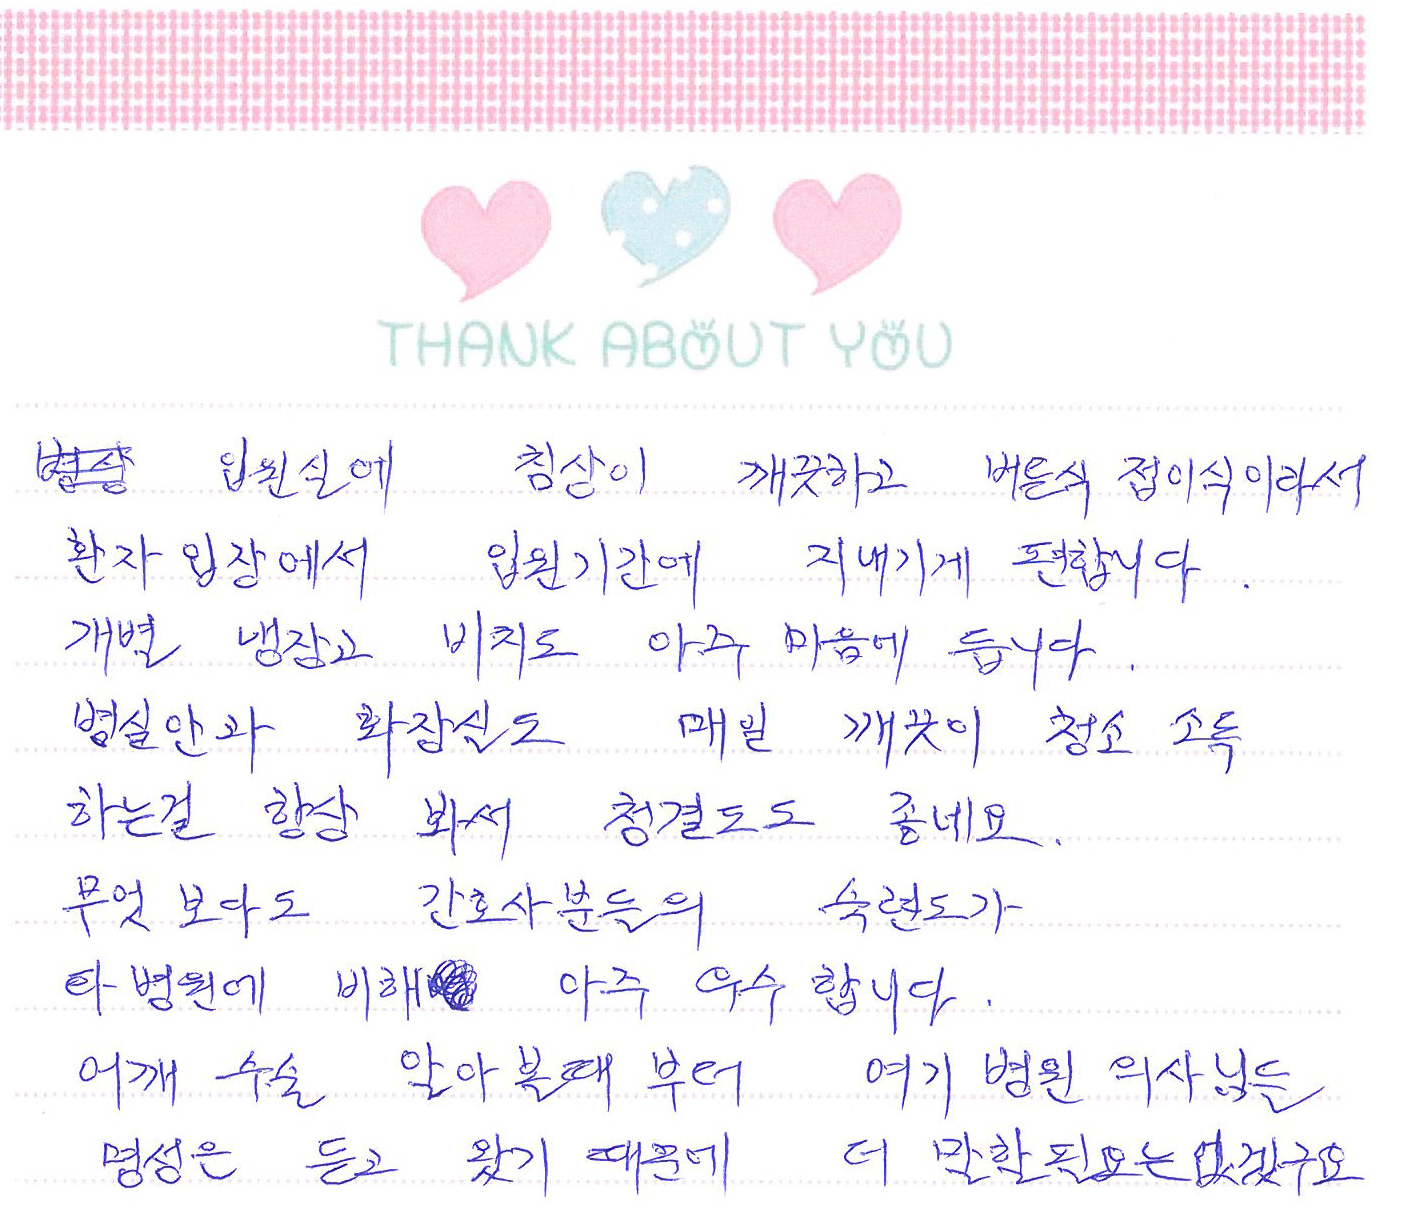 THANK ABOUT YOU
입원실에 침상이 깨끗하고 버튼식 접이식이라서
환자 입장에서 입원기간에 지내기게 편합니다.
개별 냉장고 비치도 아주 마음에 듭니다.
병실안과 화장실도 매일 깨끗이 청소 소독
하는걸 항상 봐서 청결도도 좋네요.
무엇 보다도 간호사분들의 숙련도가
타 병원에 비해 아주 우수 합니다.
어깨 수술 알아 볼때 부터 여기 병원 의사님들
명성은 듣고 왔기 때문에 더 말할 필요는 없겠구요